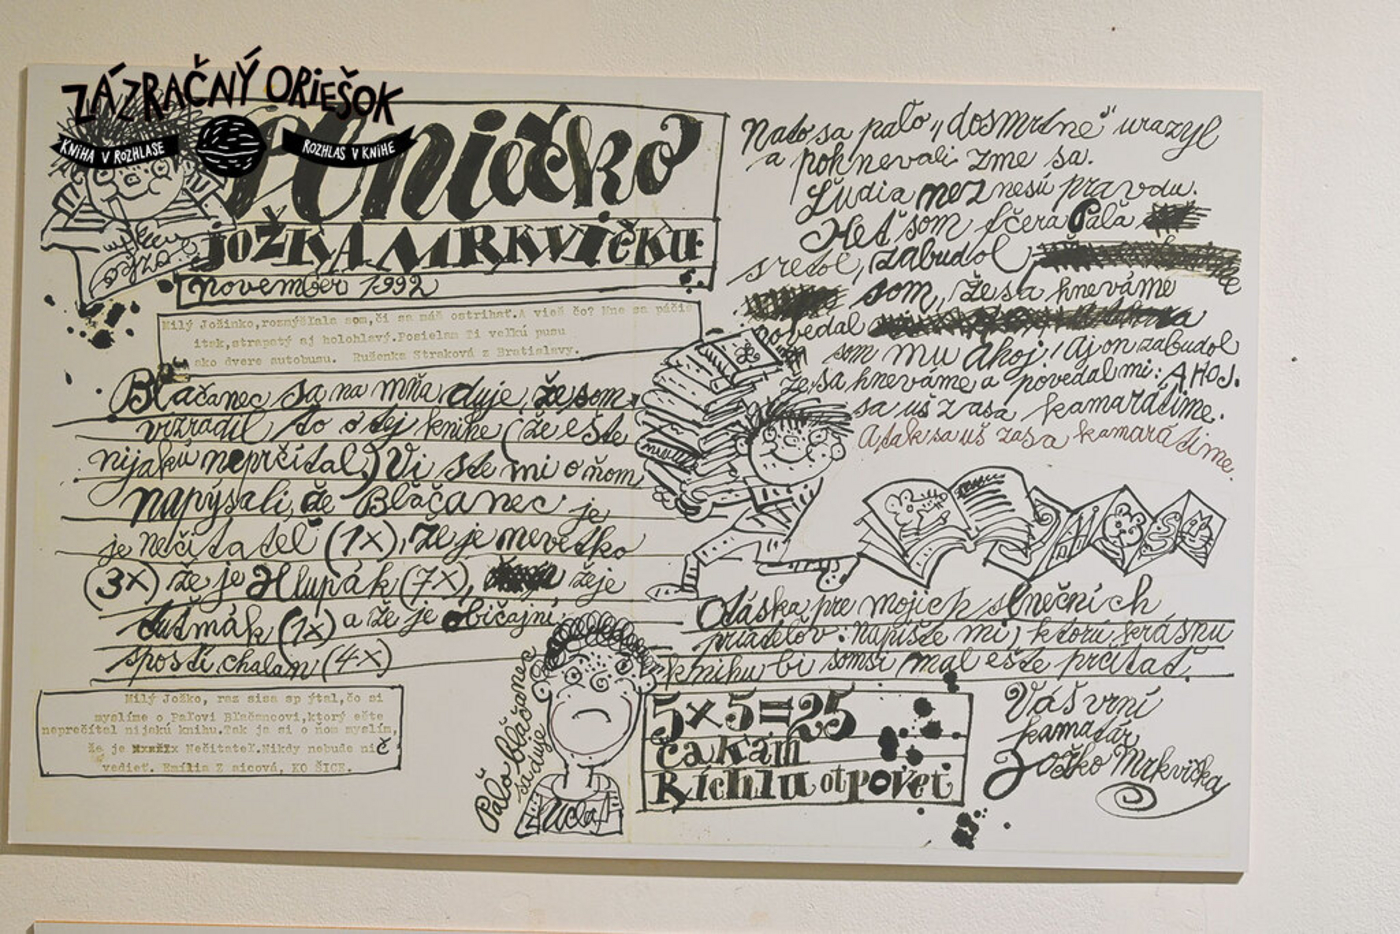 ZÁZRAČNÝ ORIEŠOK
KNIHA V ROZHLASE
ROZHLAS V KNIHE
Slniečko
JOŽKA MRKVIČKU
november 1992
Milý Jožinko, rozmýšľala som, či sa máš ostrihať. A vieš čo? Mne sa páčiš
itak, strapatý aj holohlavý. Posielam Ti veľkú pusu
ako dvere autobusu. Ruženka Straková z Bratislavy.
Blačanec sa na mňa duje, že som
vizradil to o tej knihe (že ešte
nijakú neprčítal.) Vi ste mi o ňom
napýsali, že Blačanec je
je nečítateľ (1x), že je mevedko
(3x) že je Hlupák (7x), žeje
tutmák (1x) a že je občajní
sposti chalan (4x)
Milý Jožko, raz sisa sp ýtal, čo si
myslíme o Paľovi Blačancovi, ktorý ešte
neprečítal nijakú knihu. Tak ja si o ňom myslím,
že je Nečitateľ. Nikdy nebude nič
vedieť. Emília Z aicová, KO ŠICE.
Paľo Blačanec
sa duje
Nato sa paľo "dosmrtne" urazyl
a pohnevali zme sa.
Ľudia neznesú pravdu.
Keť som fčera Paľa
stretol, zabudol
som, že sa hneváme
povedal
som mu ahoj! Aj on zabudol
že sa hneváme a povedal mi: AHOJ.
sa uš zasa kamarátime.
A tak sa uš zasa kamarátime.
Otáska pre mojich slnečních
priateľov: napíšte mi, ktorú krásnu
knihu bi somsi mal ešte prčítať.
5x5=25
čakám
Richlu otpoveť
Váš vrní
kamarár
Joško Mrkvička